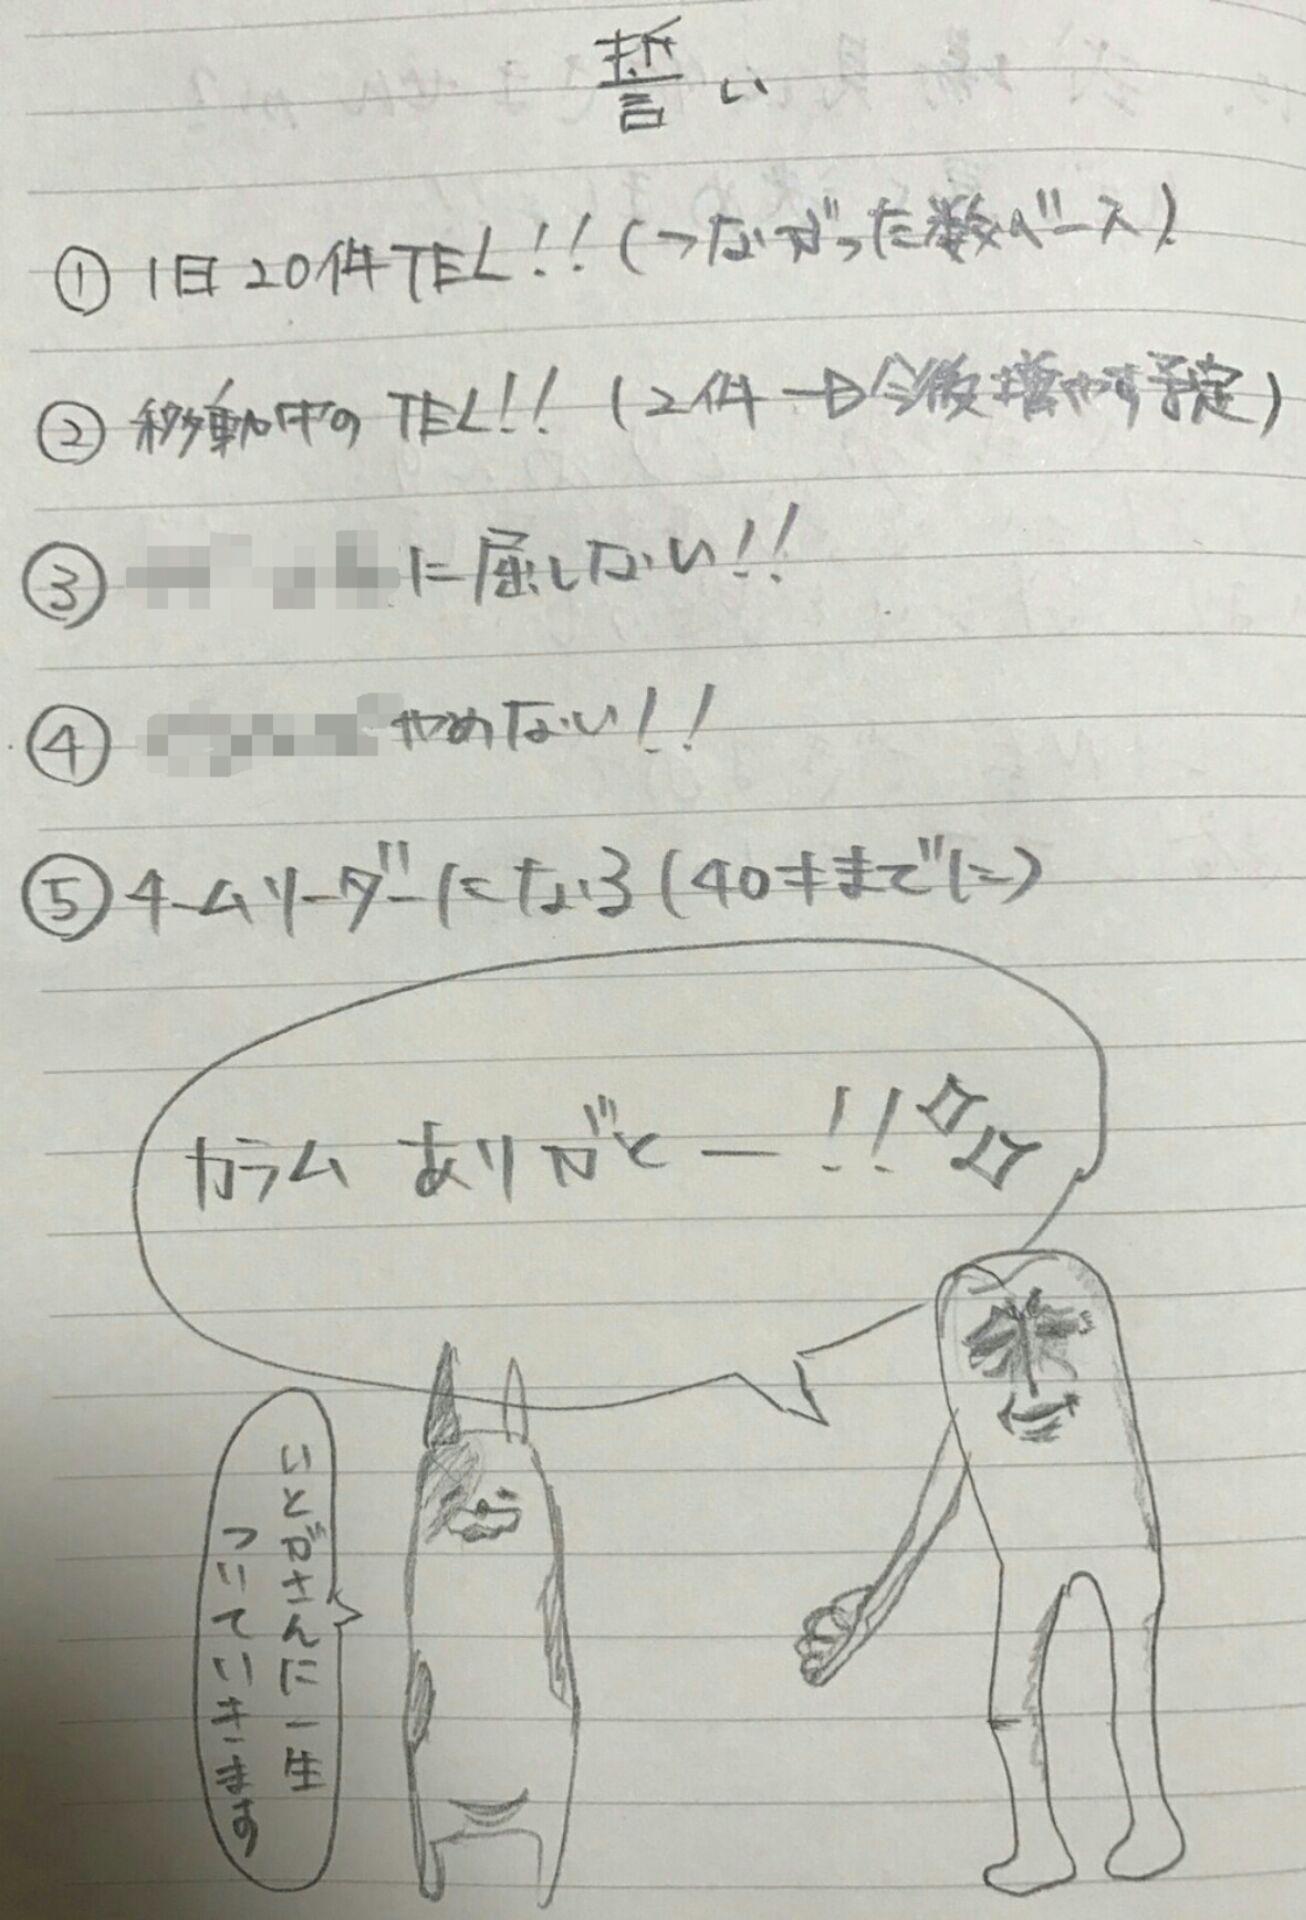 誓い
① 1日20件TEL!!(つながった数ベース)
② 移動中のTEL!! (2件→今後増やす予定)
③ に屈しない!!
④ やめない!!
⑤ チームリーダーになる(40才までに)
カラム ありがとー!!
いとがさんに一生
ついていきます